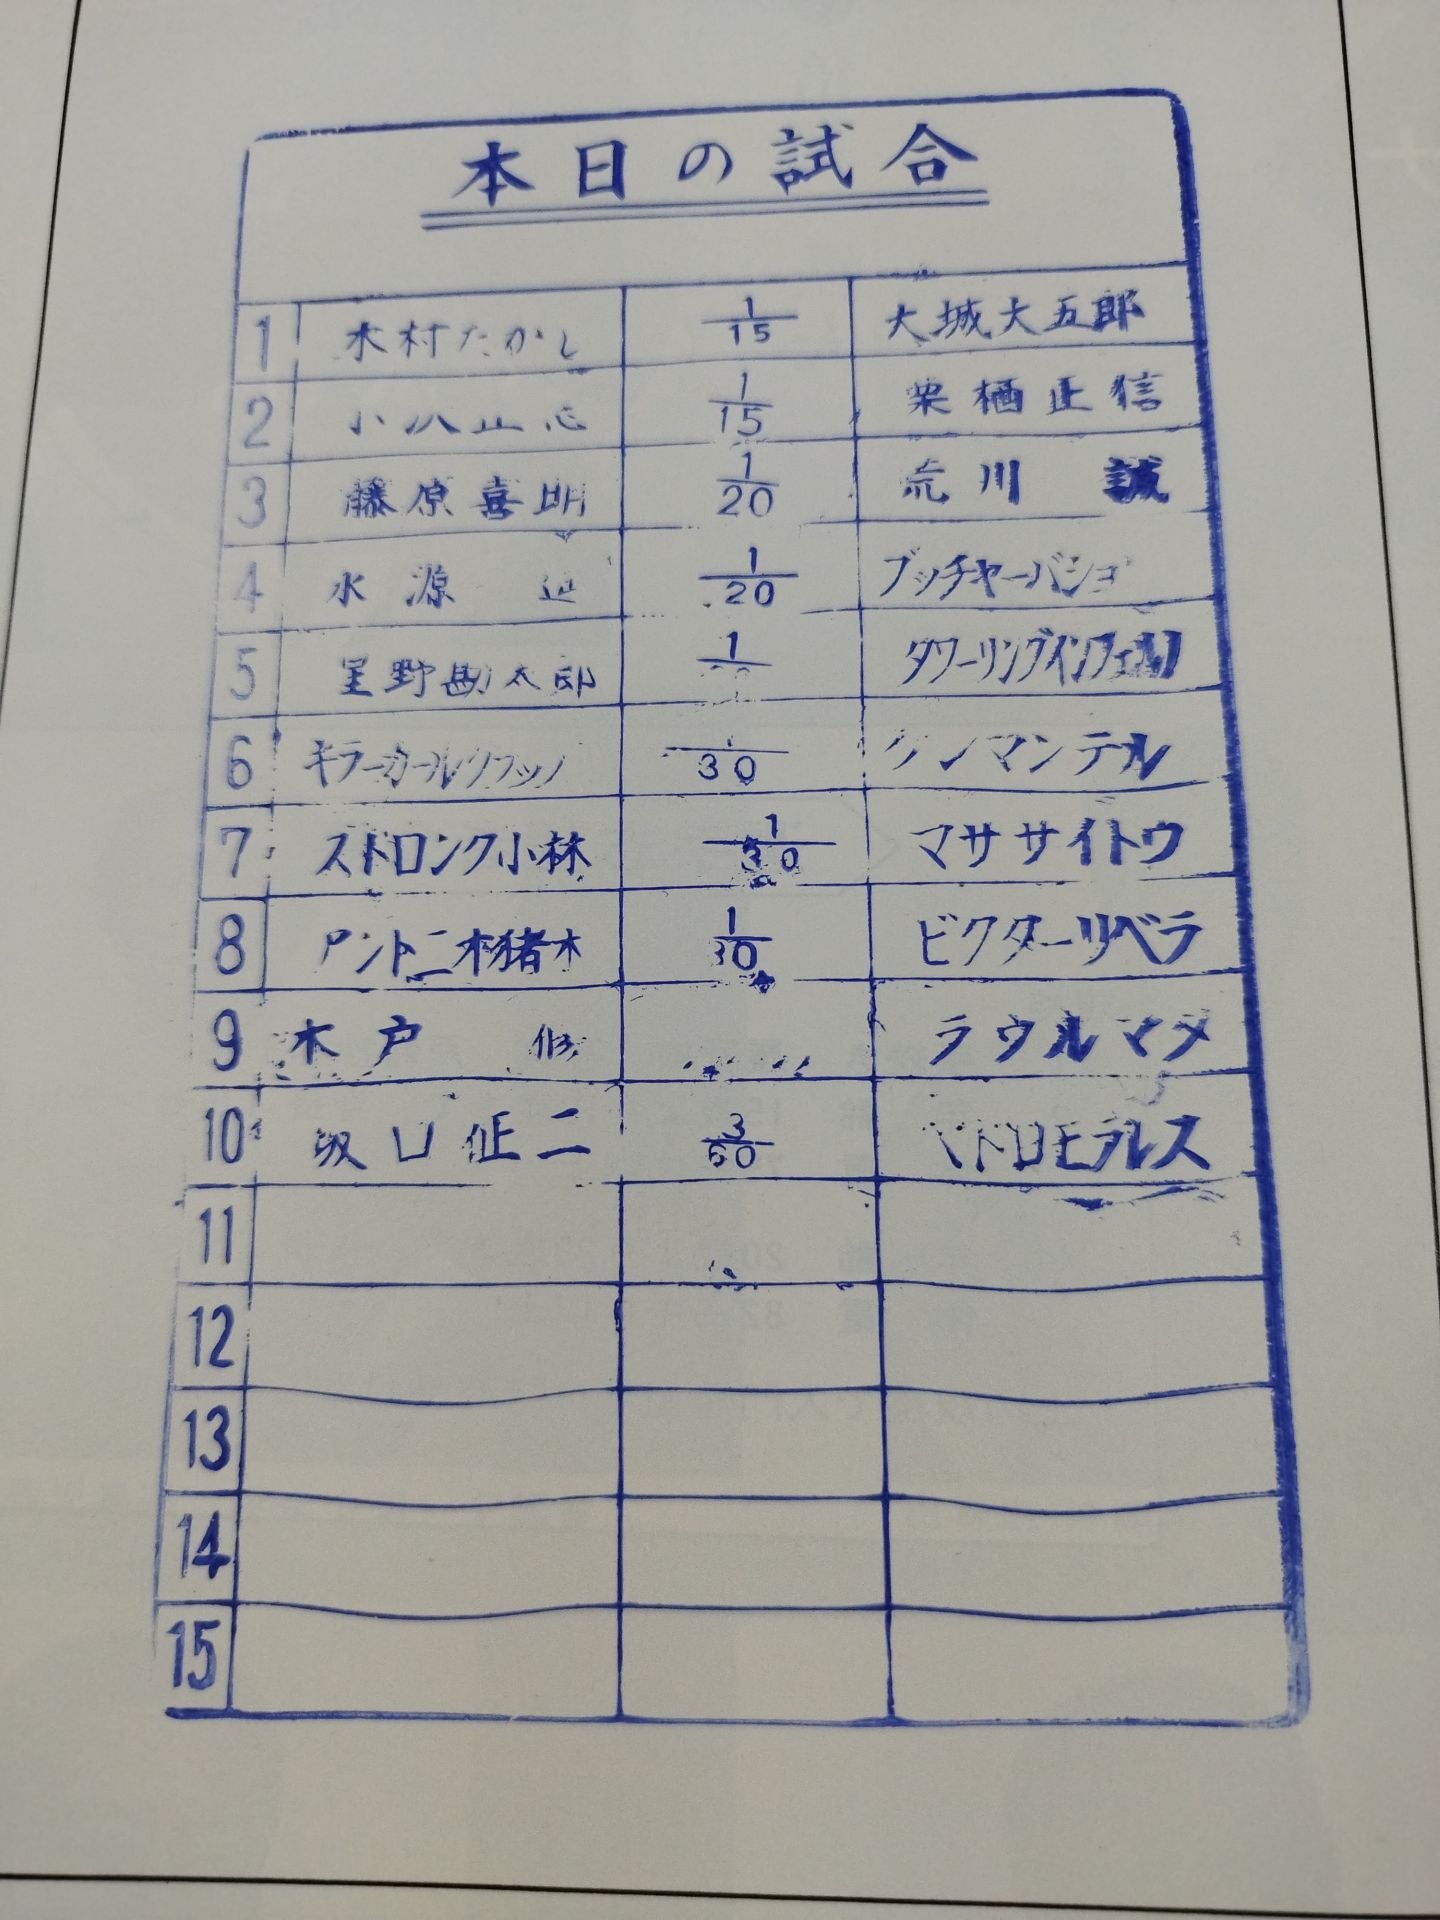 本日の試合
1 木村たかし 1/15 大城大五郎
2 小沢正志 1/15 栗栖正信
3 藤原喜明 1/20 荒川 誠
4 永源 1/20 ブッチャーバション
5 星野勘太郎 1 タワーリングインフェルノ
6 キラーカールクラップ 30 マンテル
7 ストロング小林 1/30 マササイトウ
8 アントニオ猪木 1/30 ビクターリベラ
9 木戸 修 ラウルマタ
10 坂口征二 3/60 ペドロモラレス
11
12
13
14
15